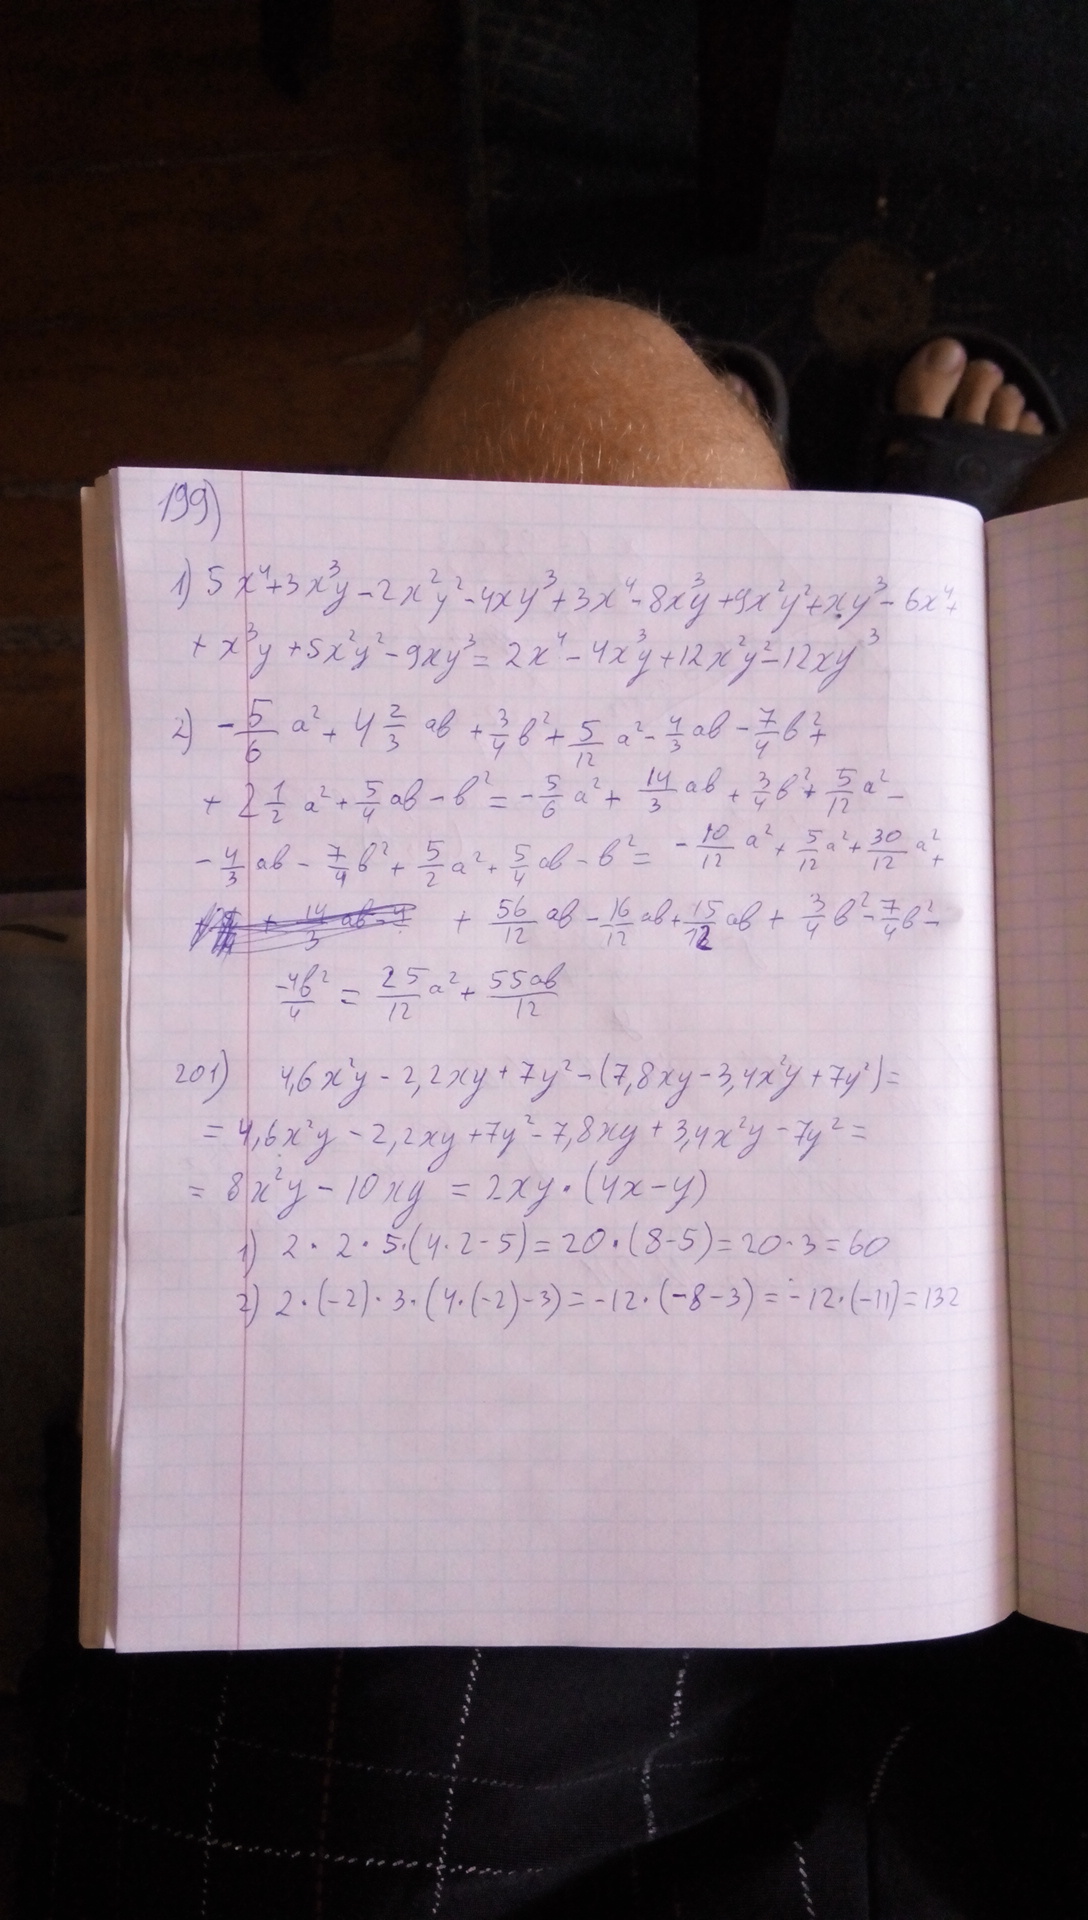 199)
1) 5x⁴+3x³y-2x²y²-4xy³+3x⁴-8x³y+9x²y²+xy³-6x⁴+
+x³y+5x²y²-9xy³=2x⁴-4x³y+12x²y²-12xy³
2) -5/6 a²+4 2/3 ab+3/4 b²+5/12 a²-4/3 ab-7/4 b²+
+2 1/2 a²+5/4 ab-b²=-5/6 a²+14/3 ab+3/4 b²+5/12 a²-
-4/3 ab-7/4 b²+5/2 a²+5/4 ab-b²=-10/12 a²+5/12 a²+30/12 a²+
+56/12 ab-16/12 ab+15/12 ab+3/4 b²-7/4 b²-
-4b²/4=25/12 a²+55ab/12
201) 4,6x²y-2,2xy+7y²-(7,8xy-3,4x²y+7y²)=
=4,6x²y-2,2xy+7y²-7,8xy+3,4x²y-7y²=
=8x²y-10xy=2xy·(4x-y)
1) 2·2·5·(4·2-5)=20·(8-5)=20·3=60
2) 2·(-2)·3·(4·(-2)-3)=-12·(-8-3)=-12·(-11)=132